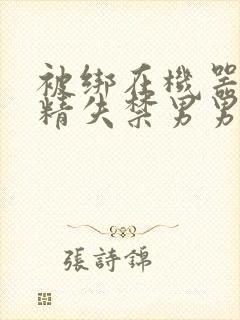 被绑在機器
精失禁男男
張詩錦